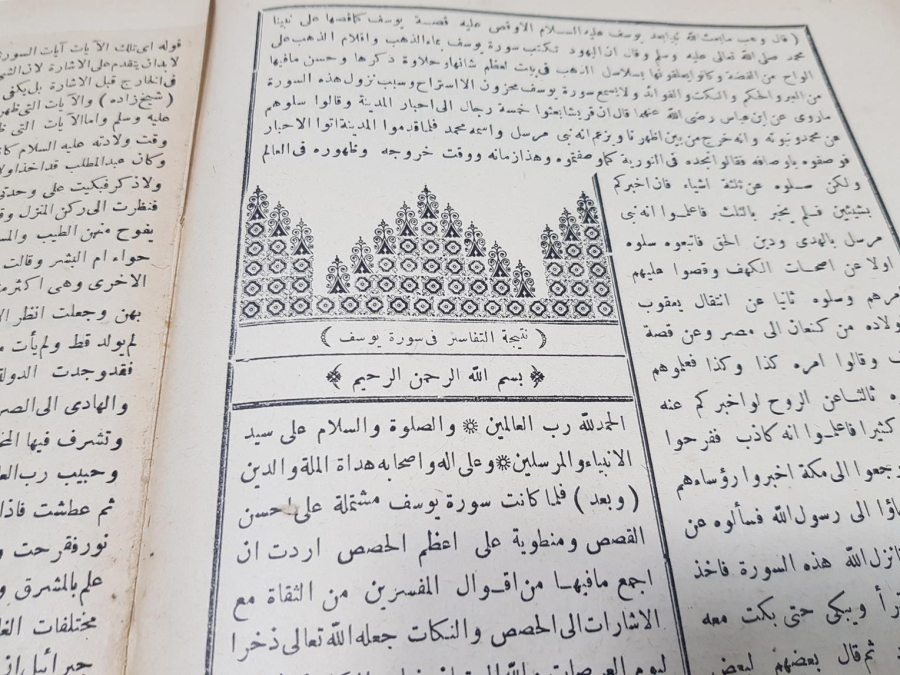 ( قال وهب مابعث الله نبيا بعد يوسف عليه السلام الا وقص عليه قصة يوسف كما قصها على نبينا
محمد صلى الله تعالى عليه وسلم وقال ان اليهود تكتب سورة يوسف بماء الذهب واقلام الذهب على
الواح من الفضة وكانوا يعلقونها بسلاسل الذهب فى بيت لعظم شانها وحلاوة ذكرها وحسن مافيها
من العبر والحكم والنكت والفوائد ولا يسمع سورة يوسف محزون الا استراح وسبب نزول هذه السورة
ماروى عن ابن عباس رضى الله عنهما قال ان قريشا بعثوا خمسة رجال الى احبار المدينة وقالوا سلوهم
عن محمد ونبوته وانه خرج من بين اظهرنا ويزعم انه نبى مرسل واسمه محمد فلما قدموا المدينة اتوا الاحبار
فوصفوه باوصافه فقالوا نجده فى التورية كما وصفتموه وهذا زمانه ووقت خروجه وظهوره فى العالم
ولكن سلوه عن ثلثة اشياء فان اخبركم
بشيئين فلم يخبر بالثلث فاعلموا انه نبى
مرسل بالهدى ودين الحق فاتبعوه سلوه
اولا عن اصحاب الكهف وقصوا عليهم
امرهم وسلوه ثانيا عن انتقال يعقوب
ولاده من كنعان الى مصر وعن قصة
وقالوا امره كذا وكذا فعلموهم
ثالثا عن الروح لو اخبركم عنه
كثيرا فاعلموا انه كاذب ففرحوا
رجعوا الى مكة اخبروا رؤساءهم
جاؤا الى رسول الله فسألوه عن
فانزل الله هذه السورة فاخذ
يقرأ ويبكى حتى بكت معه
ثم قال بعضهم لبعض
( نتيجة التفاسير فى سورة يوسف )
بسم الله الرحمن الرحيم
الحمدلله رب العالمين ۞ والصلوة والسلام على سيد
الانبياء والمرسلين ۞ وعلى اله واصحابه هداة الملة والدين
( وبعد ) فلما كانت سورة يوسف مشتملة على احسن
القصص ومنطوية على اعظم الحصص اردت ان
اجمع مافيها من اقوال المفسرين من الثقاة مع
الاشارات الى الحصص والنكات جعله الله تعالى ذخرا
قوله اى تلك الآيات آيات السورة
لابدان يتقدم على الاشارة لان الشى
فى الخارج قبل الاشارة بل يكفى
( شيخ زاده ) والآيات التى ظهر
عليه وسلم واما الآيات التى
وقت ولادته عليه السلام كا
وكان عبد المطلب قد اخذ اولا
ولاذكر فبكيت على وحدتى
فنظرت الى ركن المنزل وقد
يفوح منهن الطيب والمس
حواء ام البشر وقالت
الاخرى وهى اكثر
بهن وجعلت انظر الا
لم يولد قط ولم يأت
فقد وجدت الدولة
والهادى الى الصر
وتشرف فيها المح
وحبيب رب العا
ثم عطشت فاذا
نور فقرحت و
علم بالمشرق و
مختلفات الغا
جبرائيل ان